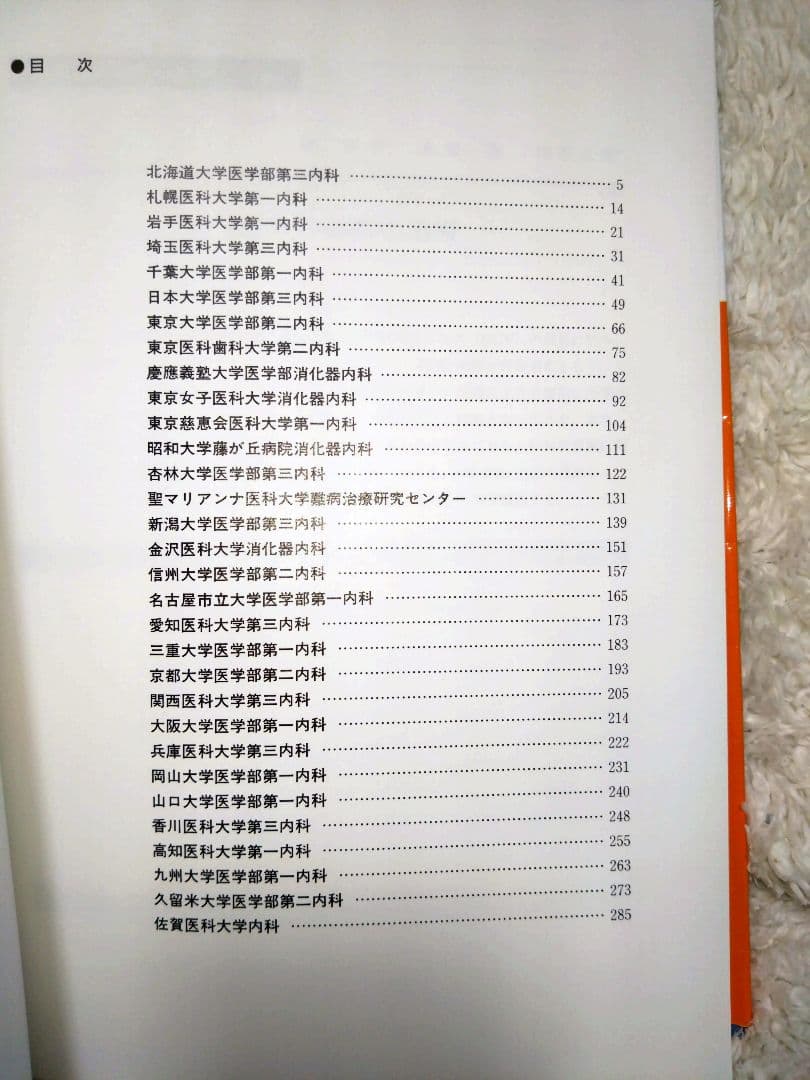 ●目 次
北海道大学医学部第三内科 …… 5
札幌医科大学第一内科 …… 14
岩手医科大学第一内科 …… 21
埼玉医科大学第三内科 …… 31
千葉大学医学部第一内科 …… 41
日本大学医学部第三内科 …… 49
東京大学医学部第二内科 …… 66
東京医科歯科大学第二内科 …… 75
慶應義塾大学医学部消化器内科 …… 82
東京女子医科大学消化器内科 …… 92
東京慈恵会医科大学第一内科 …… 104
昭和大学藤が丘病院消化器内科 …… 111
杏林大学医学部第三内科 …… 122
聖マリアンナ医科大学難病治療研究センター …… 131
新潟大学医学部第三内科 …… 139
金沢医科大学消化器内科 …… 151
信州大学医学部第二内科 …… 157
名古屋市立大学医学部第一内科 …… 165
愛知医科大学第三内科 …… 173
三重大学医学部第一内科 …… 183
京都大学医学部第二内科 …… 193
関西医科大学第三内科 …… 205
大阪大学医学部第一内科 …… 214
兵庫医科大学第三内科 …… 222
岡山大学医学部第一内科 …… 231
山口大学医学部第一内科 …… 240
香川医科大学第三内科 …… 248
高知医科大学第一内科 …… 255
九州大学医学部第一内科 …… 263
久留米大学医学部第二内科 …… 273
佐賀医科大学内科 …… 285